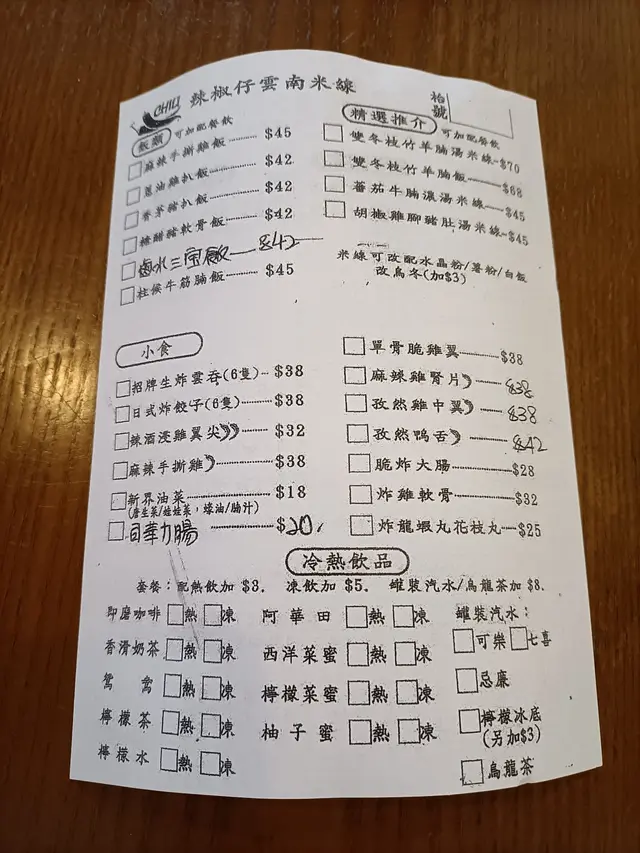 CHILI 辣椒仔雲南米線
枱號
飯類 可加配餐飲
麻辣手撕雞飯 $45
蔥油雞扒飯 $42
香茅豬扒飯 $42
糖醋豬軟骨飯 $42
鹵水三宝飯 $42
柱侯牛筋腩飯 $45
精選推介 可加配餐飲
雙冬枝竹羊腩湯米線 $70
雙冬枝竹羊腩飯 $68
蕃茄牛腩濃湯米線 $45
胡椒雞腳豬肚湯米線 $45
米線可改配水晶粉/薯粉/白飯
改烏冬(加$3)
小食
招牌生炸雲吞(6隻) $38
日式炸餃子(6隻) $38
辣酒浸雞翼尖 $32
麻辣手撕雞 $38
新界油菜 $18
(唐生菜/娃娃菜, 蠔油/腩汁)
$20
單骨脆雞翼 $38
麻辣雞腎片 $38
孜然雞中翼 $38
孜然鴨舌 $42
脆炸大腸 $28
炸雞軟骨 $32
炸龍蝦丸花枝丸 $25
冷熱飲品
套餐:配熱飲加 $3. 凍飲加 $5. 罐裝汽水/烏龍茶加 $8.
即磨咖啡 熱 凍
香滑奶茶 熱 凍
鴛鴦 熱 凍
檸檬茶 熱 凍
檸檬水 熱 凍
阿華田 熱 凍
西洋菜蜜 熱 凍
檸檬菜蜜 熱 凍
柚子蜜 熱 凍
罐裝汽水:
可樂 七喜
忌廉
檸檬冰底
(另加$3)
烏龍茶